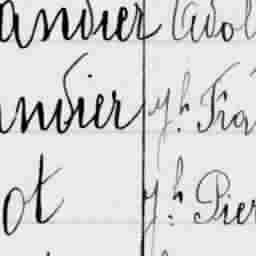 andier Adol
ndier Jh. Fra
ot Jh. Pier